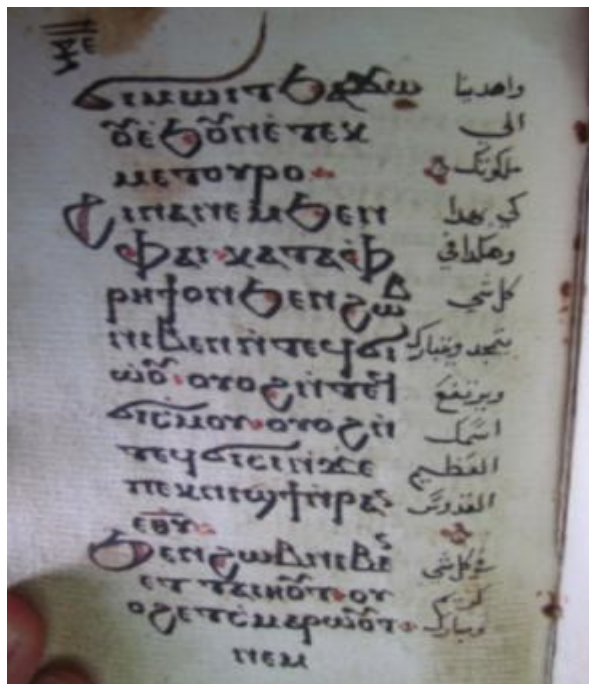 ϭⲓⲙⲱⲓⲧ ϧⲁϫⲱ واهدينا
ⲟⲩⲉϧⲟⲩⲛ ⲉⲧⲉⲕ الى
ⲙⲉⲧⲟⲩⲣⲟ ملكوتك
ϩⲓⲛⲁ ⲛⲉⲙ ϧⲉⲛ كي بهدا
ⲫⲁⲓ ⲕⲁⲧⲁ ⲫ وهكدا في
ⲣⲏϯ ⲟⲛ ϧⲉⲛ ϩⲱⲃ كل شي
ⲛⲓⲃⲉⲛ ⲛ̀ⲧⲉϥϭⲓ يتمجد ويتبارك
ⲱⲟⲩ ⲟⲩⲟϩ ⲛ̀ⲧⲉϥ ويرتفع
ϭⲓⲥⲙⲟⲩ ⲟⲩⲟϩ ⲛ̀ اسمك
ⲧⲉϥϭⲓⲥⲓ ⲛ̀ϫⲉ العظيم
ⲡⲉⲕⲛⲓϣϯ ⲛ̀ⲣⲁⲛ القدوس
ⲉⲑⲩ
ϧⲉⲛ ϩⲱⲃ ⲛⲓⲃⲉⲛ في كل شي
ⲉⲧⲧⲁⲓⲏⲟⲩⲧ ⲟⲩ كريم
ⲟϩ ⲉⲧⲥ̀ⲙⲁⲣⲱⲟⲩⲧ ومبارك
ⲛⲉⲙ